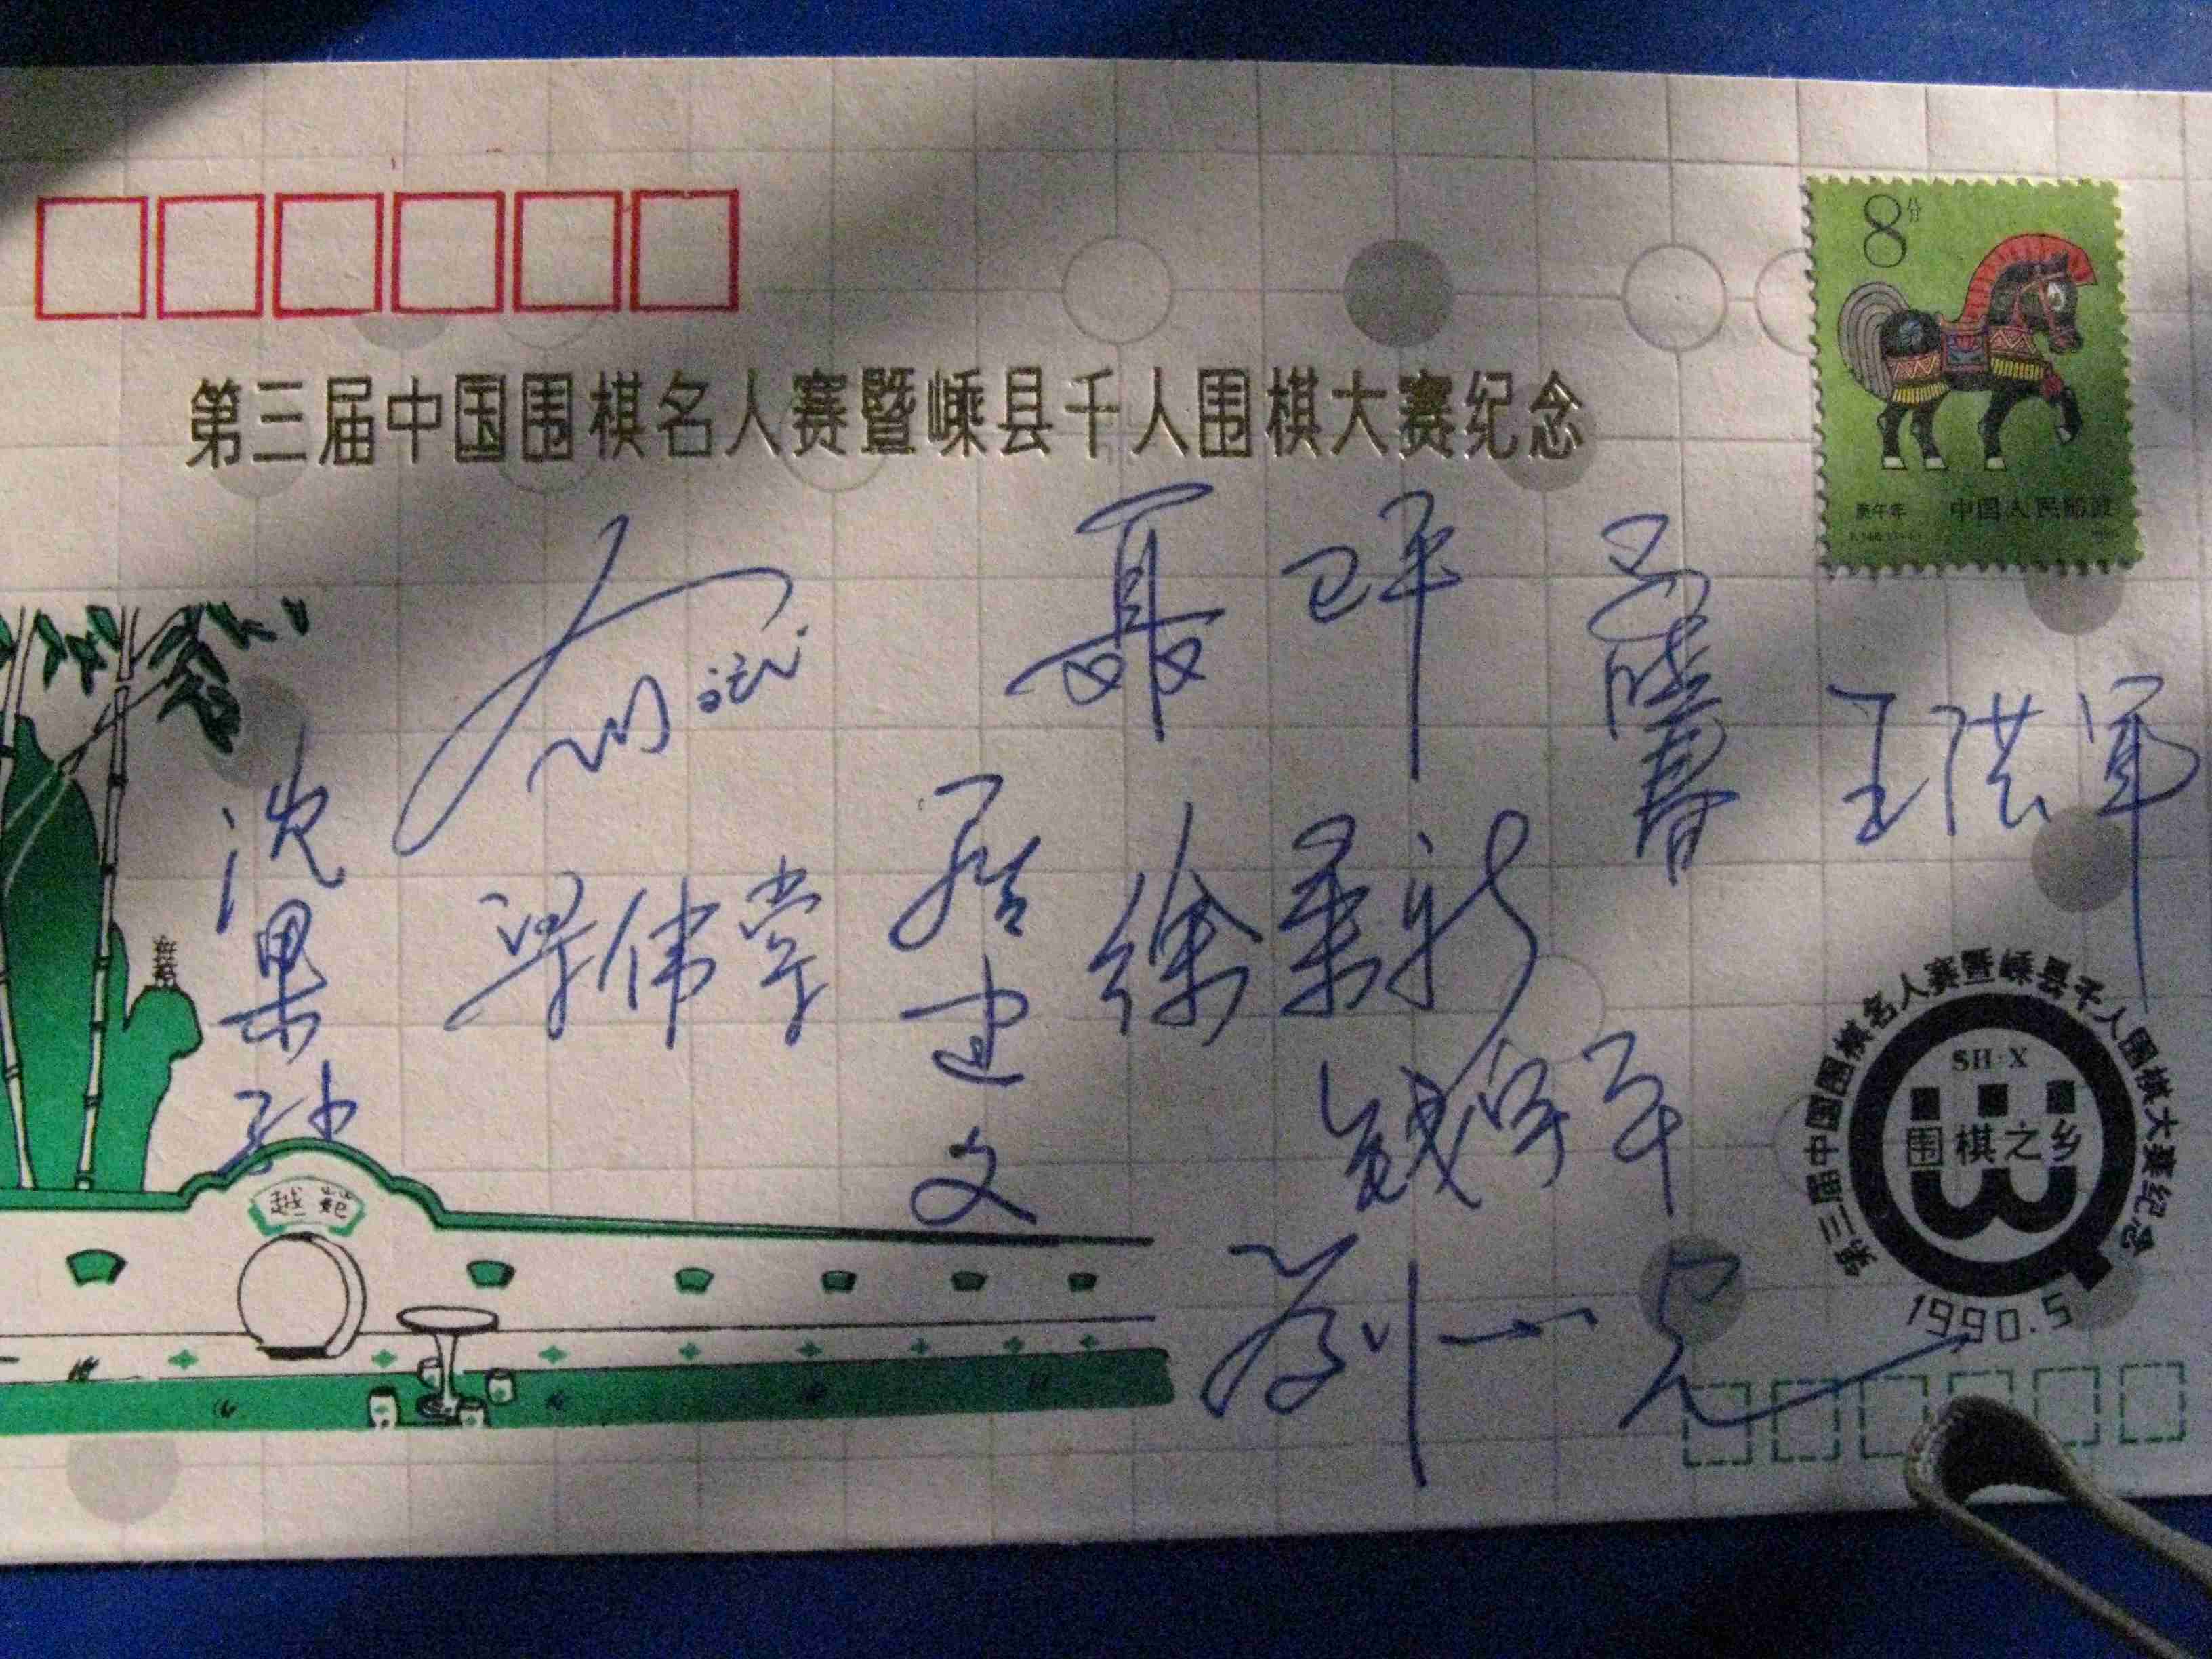 8分
庚午年 中国人民邮政
第三届中国围棋名人赛暨嵊县千人围棋大赛纪念
聂卫平
马晓春
王洪军
沈果孙
梁伟棠
罗建文
徐荣新
钱宇平
刘小光
越苑
第三届中国围棋名人赛暨嵊县千人围棋大赛纪念
SH·X
围棋之乡
1990.5